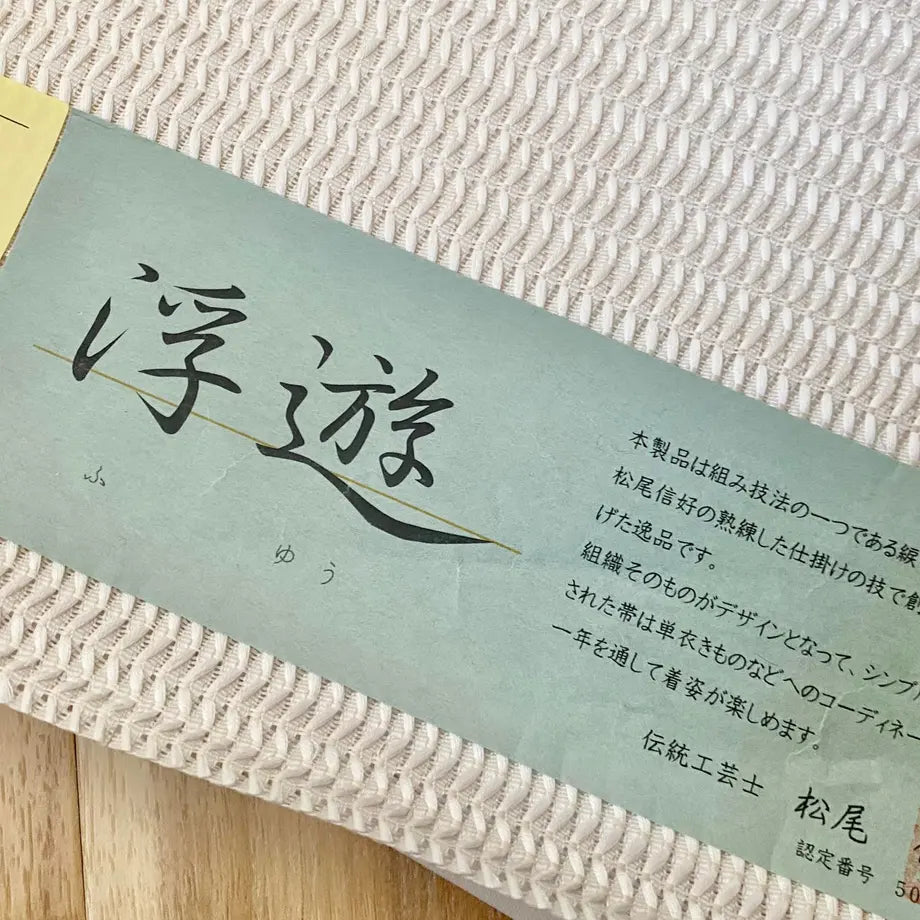 浮遊
ふ ゆう
本製品は組み技法の一つである綟
松尾信好の熟練した仕掛けの技で創
げた逸品です。
組織そのものがデザインとなって、シンプ
された帯は単衣きものなどへのコーディネー
一年を通して着姿が楽しめます。
伝統工芸士 松尾
認定番号 50